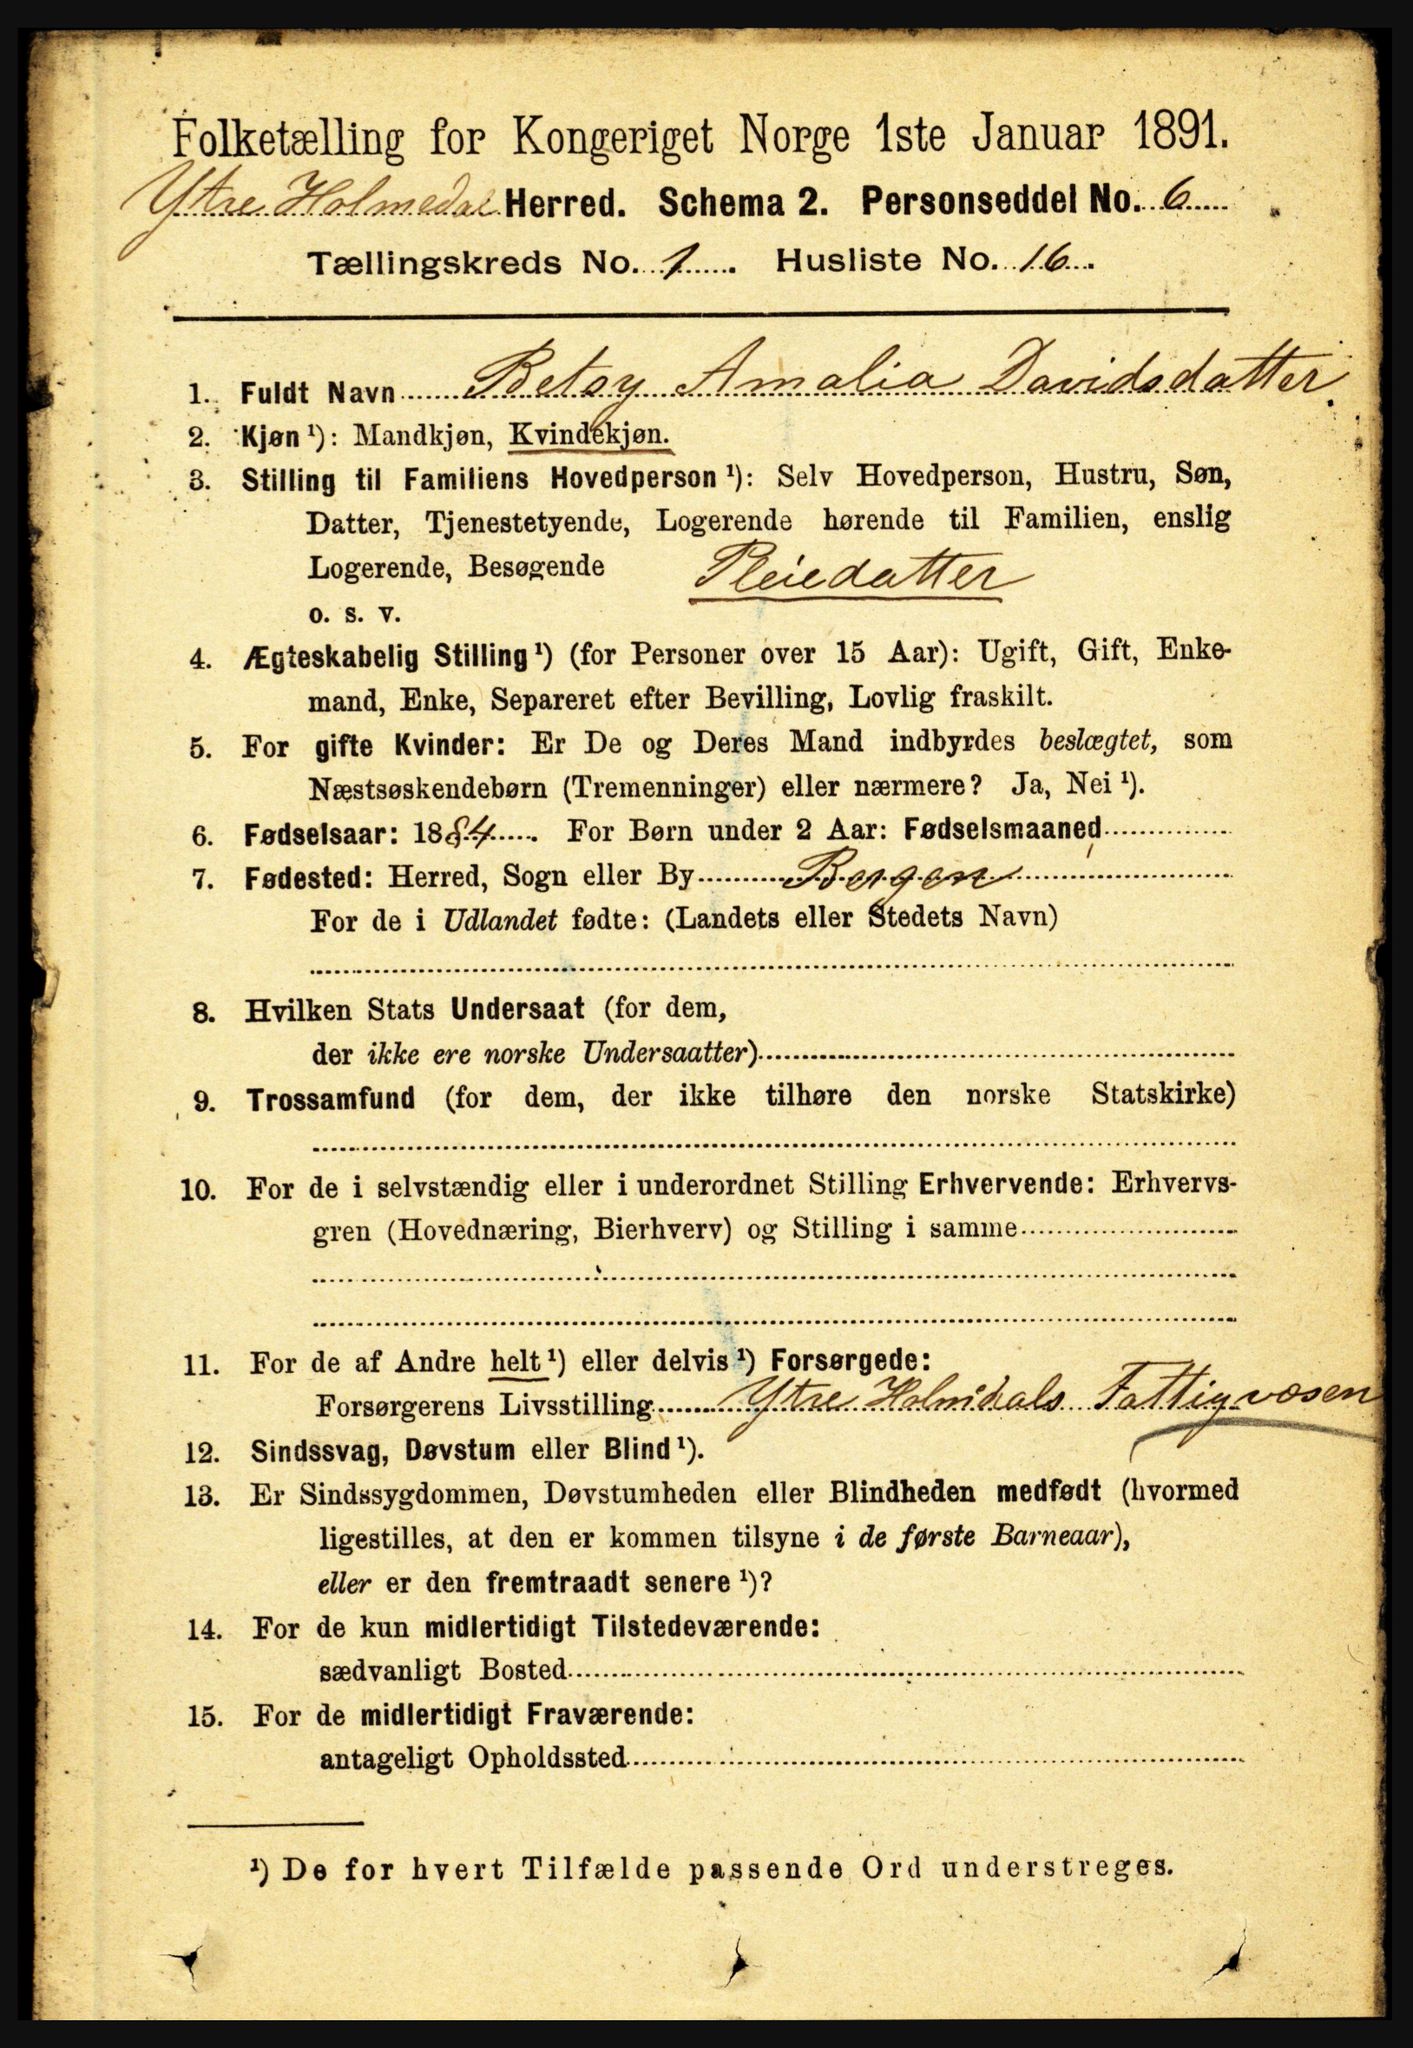 Folketælling for Kongeriget Norge 1ste Januar 1891.
Ytre Holmedal Herred. Schema 2. Personseddel No. 6
Tællingskreds No. 1. Husliste No. 16.
1. Fuldt Navn Betsy Amalia Davidsdatter
2. Kjøn ¹): Mandkjøn, Kvindekjøn.
3. Stilling til Familiens Hovedperson ¹): Selv Hovedperson, Hustru, Søn,
Datter, Tjenestetyende, Logerende hørende til Familien, enslig
Logerende, Besøgende Pleiedatter
o. s. v.
4. Ægteskabelig Stilling ¹) (for Personer over 15 Aar): Ugift, Gift, Enke-
mand, Enke, Separeret efter Bevilling, Lovlig fraskilt.
5. For gifte Kvinder: Er De og Deres Mand indbyrdes beslægtet, som
Næstsøskendebørn (Tremenninger) eller nærmere? Ja, Nei ¹).
6. Fødselsaar: 1884. For Børn under 2 Aar: Fødselsmaaned
7. Fødested: Herred, Sogn eller By Bergen
For de i Udlandet fødte: (Landets eller Stedets Navn)
8. Hvilken Stats Undersaat (for dem,
der ikke ere norske Undersaatter)
9. Trossamfund (for dem, der ikke tilhøre den norske Statskirke)
10. For de i selvstændig eller i underordnet Stilling Erhvervende: Erhvervs-
gren (Hovednæring, Bierhverv) og Stilling i samme
11. For de af Andre helt ¹) eller delvis ¹) Forsørgede:
Forsørgerens Livsstilling Ytre Holmedals Fattigvæsen
12. Sindssvag, Døvstum eller Blind ¹).
13. Er Sindssygdommen, Døvstumheden eller Blindheden medfødt (hvormed
ligestilles, at den er kommen tilsyne i de første Barneaar),
eller er den fremtraadt senere ¹)?
14. For de kun midlertidigt Tilstedeværende:
sædvanligt Bosted
15. For de midlertidigt Fraværende:
antageligt Opholdssted
¹) De for hvert Tilfælde passende Ord understreges.